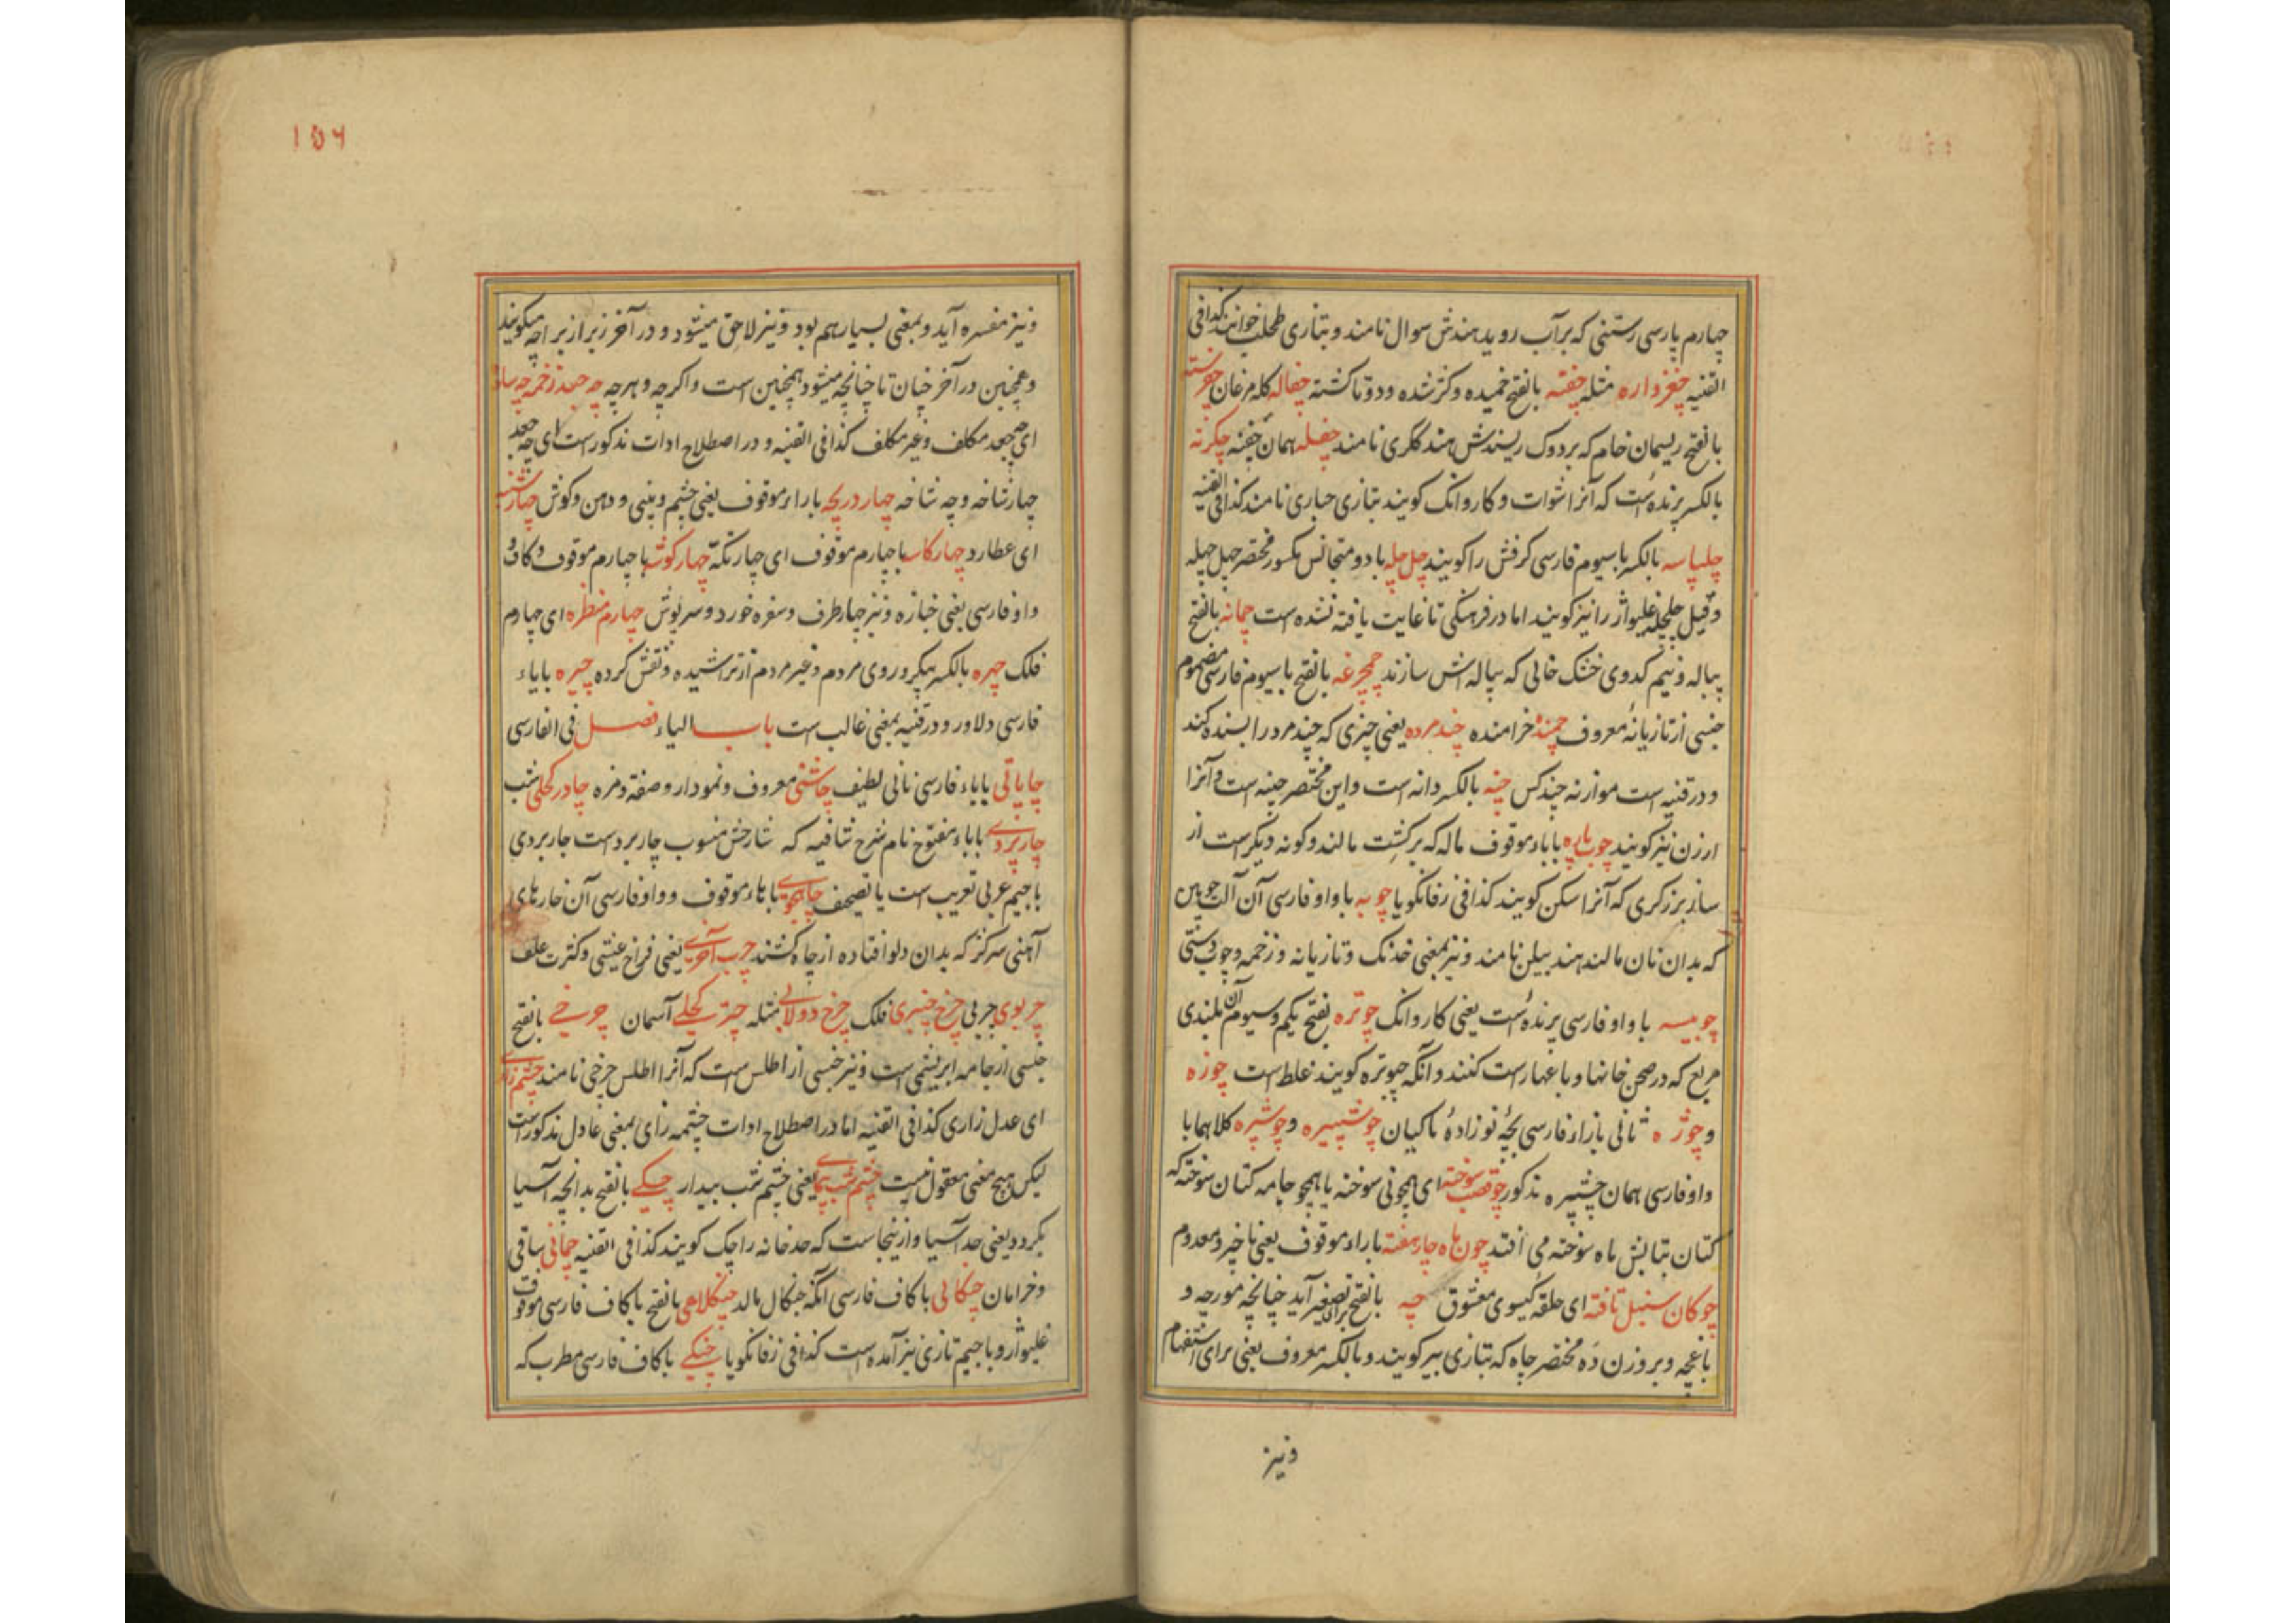 چهارم پارسی رستنی که بر آب روید هندش سوال نامند و بتازی طحلب خوانند کذا فی
القنیه چغزواره مثله چفته بالفتح خمیده و کژ شده و دوتا کشته چفاله کله مرغان
بالفتح ریسمان خام که بر دوک ریسندش هند ککری نامند چفله همان چفته چکرنه
بالکسر پرنده است که آنرا شوات و کاروانک کویند بتازی حباری نامند کذا فی القنیه
چلپاسه بالکسر با سیوم فارسی کرفش را کویند چل چله با دو متجانس مکسور مختصر چهل چهله
و قیل چلچله غلیواژ را نیز کویند اما در فرهنکی تا غایت یافته نشده است چمانه بالفتح
پیاله و نیم کدوی خشک خالی که پیاله اش سازند چمچرغه بالفتح با سیوم فارسی مضموم
جنسی از تازیانهٔ معروف چمنده خرامنده چند مرده یعنی چیزی که چند مرد را بسنده کند
و در قنیه است موازنه چند کس چنه بالکسر دانه است و این مختصر چینه است و آنرا
ارزن نیز کویند چوب پاره با باء موقوف ماله که بر کشت مالند و کونه دیکرست از
ساز برزکری که آنرا سکن کویند کذا فی زفانکویا چوبه با واو فارسی آن آلت چوبین
که بدان نان مالند هند بیلن نامند و نیز بمعنی خدنک و تازیانه و زخمه و چوب دستی
چوبیسه با واو فارسی پرنده است یعنی کاروانک چوتره بفتح یکم و سیوم آن بلندی
مربع که در صحن خانها و باغها راست کنند و آنکه چبوتره کویند غلط است چوزه
و چوژه ثانی بازاء فارسی بچهٔ نوزادهٔ ماکیان چوشپیره و چوشپره کلاهما با
واو فارسی همان چشپیره مذکور چو قصب سوخته ای همچونی سوخته یا همچو جامه کتان سوخته که
کتان بتابش ماه سوخته می افتد چون ماه چارهفته با راء موقوف یعنی ناچیز و معدوم
چوکان سنبل تافته ای حلقه کیسوی معشوق چه بالفتح برای تصغیر آید چنانچه مورچه و
باغچه و بر وزن ده مختصر چاه که بتازی بیر کویند و بالکسر معروف یعنی برای استفهام
و نیز
۱۵۶
و نیز مفسره آید و بمعنی بسیار هم بود و نیز لاحق میشود و در آخر زیر از برا چه میکویند
و همچنین در آخر چنان تا چنانچه میشود همچنین است و اکرچه و هرچه چه جعد زخمه چه ساز
ای چه جعد مکلف و غیر مکلف کذا فی القنیه و در اصطلاح ادات مذکور است ای چه جعد
چهار شاخه و چه شاخه چهار دریچه با راء موقوف یعنی چشم و بینی و دهن و کوش چهارشنبه
ای عطارد چهار کاسه با چهارم موقوف ای چهار تکه چهار کوشه با چهارم موقوف و کاف و
واو فارسی یعنی جنازه و نیز چهار طرف و سفره خورد و سرپوش چهارم منظره ای چهارم
فلک چهره بالکسر پیکر و روی مردم و غیر مردم از تراشیده و نقش کرده چیره با یاء
فارسی دلاور و در قنیه بمعنی غالب است باب الیاء فصل فی الفارسی
چاپاتی با باء فارسی نانی لطیف چاشنی معروف و نمودار و صفة و مزه چادر کحلی شب
چاربردی با باء مفتوح نام شرح شافیه که شارحش منسوب چاربرد است جاربردی
با جیم عربی تعریب است یا تصحیف چاهجوی با هاء موقوف و واو فارسی آن خارهای
آهنی سرکژ که بدان دلو افتاده از چاه کشند چرب آخری یعنی فراخ عیشی و کثرت علف
چربوی چربی چرخ چنبری فلک چرخ دولابی مثله چتر کحلی آسمان چرخی بالفتح
جنسی از جامه ابریشمی است و نیز جنسی از اطلس است که آنرا اطلس چرخی نامند چشم زای
ای عدل زاری کذا فی القنیه اما در اصطلاح ادات چشمه زای بمعنی عادل مذکور است
لیکن هیچ معنی معقول نیست چشم شب پیمای یعنی چشم شب بیدار چکی بالفتح بدانچه آسیا
بکردد یعنی حد آسیا و از ینجاست که حد خانه را چک کویند کذا فی القنیه چمانی ساقی
و خرامان چنکالی با کاف فارسی آنکه چنکال مالد چنکلاهی بالفتح با کاف فارسی موقوف
غلیواژ و با جیم تازی نیز آمده است کذا فی زفانکویا چنکی با کاف فارسی مطرب که